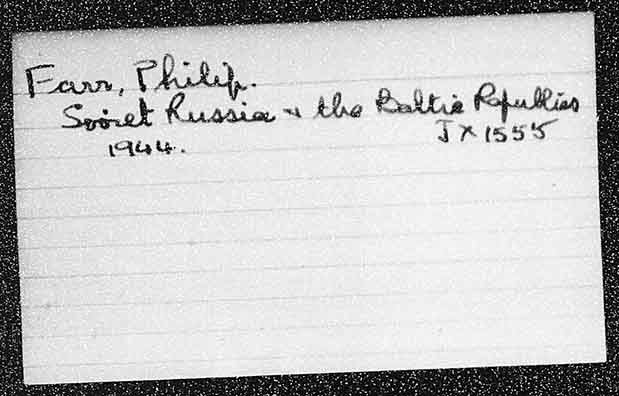 Farr, Philip.
Soviet Russia & the Baltic Republics
JX1555
1944.